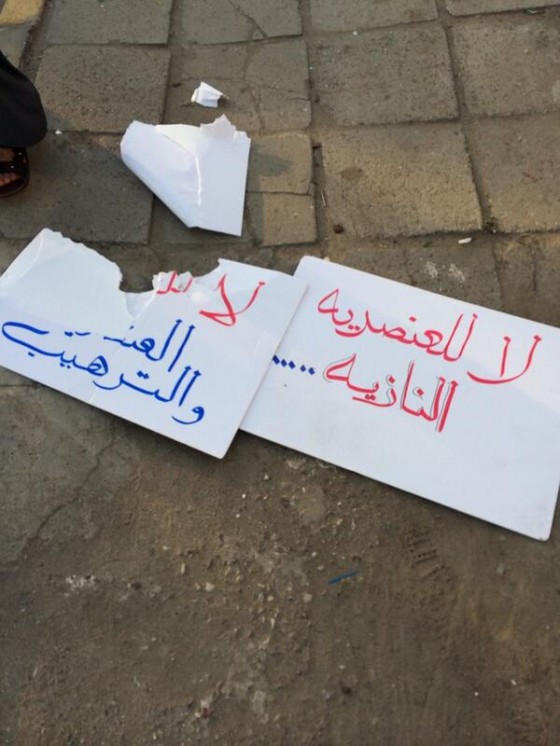 لا للعنصريه
النازيه .....
لا
والترهيب